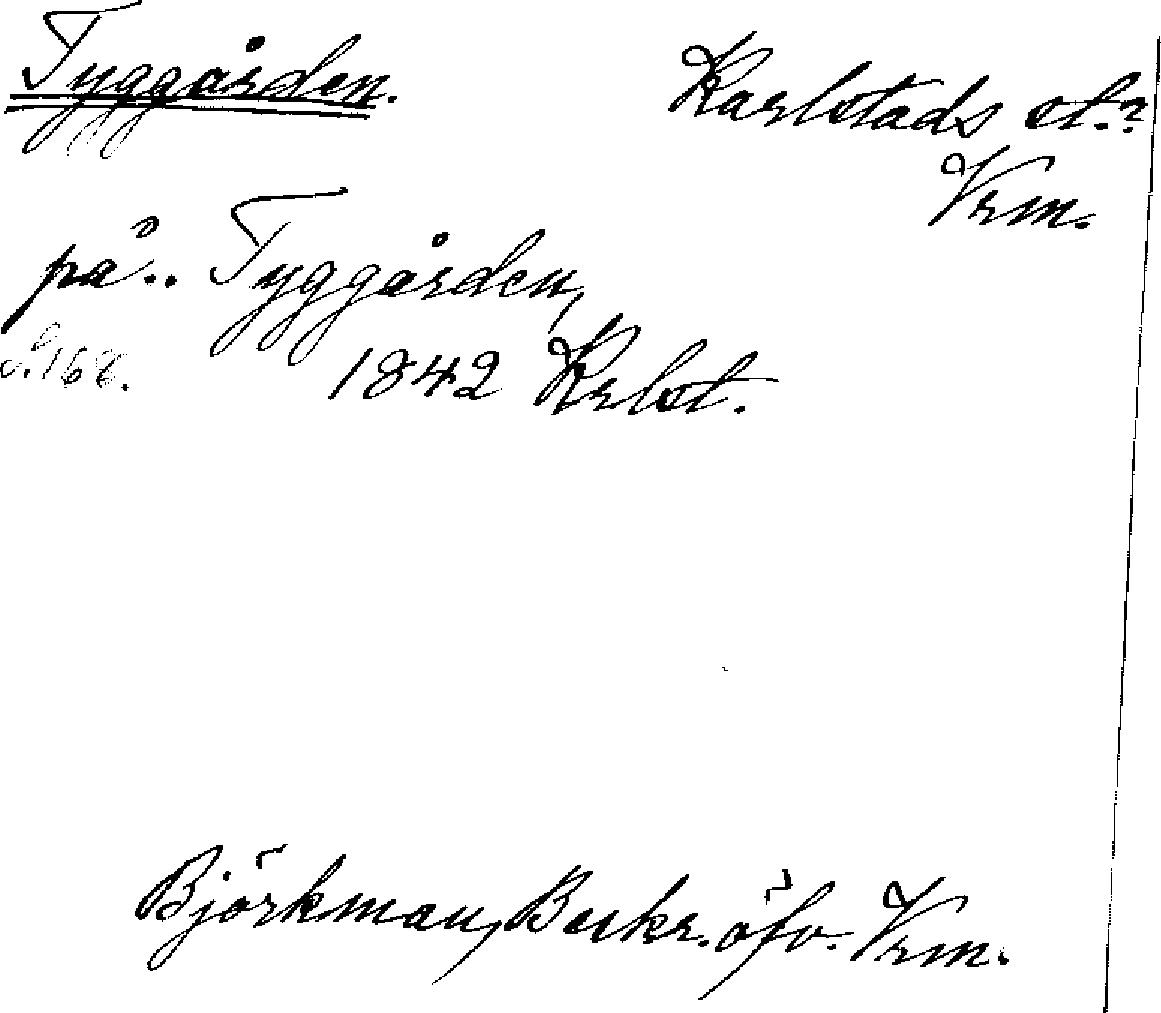 Tyggården.
Karlstads st.?
Vrm.
på.. Tyggården,
S. 168.
1842 Krlst.
Björkman, Beskr. öfv. Vrm.